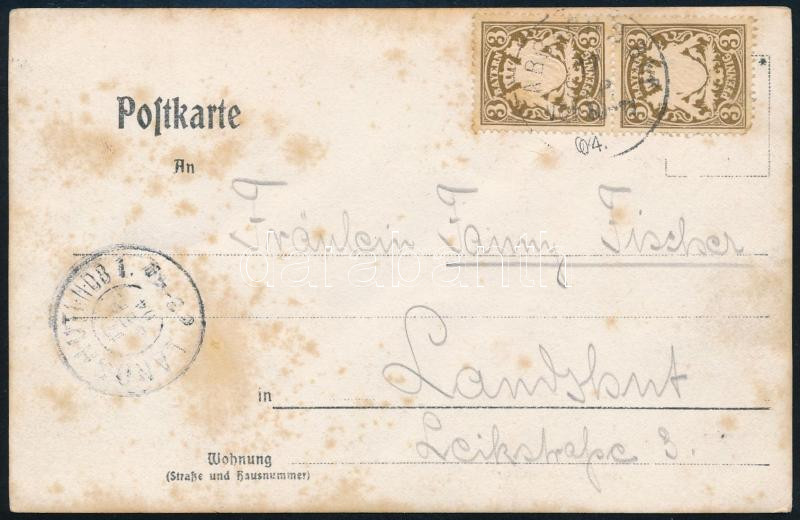 3 BAYERN PFENNIG 3 3 BAYERN PFENNIG 3
Postkarte
04.
An
Fräulein Fanny Fischer
darabanth
LANDSHUT I. NDB 1.
in Landshut
3.
Wohnung
(Straße und Hausnummer)